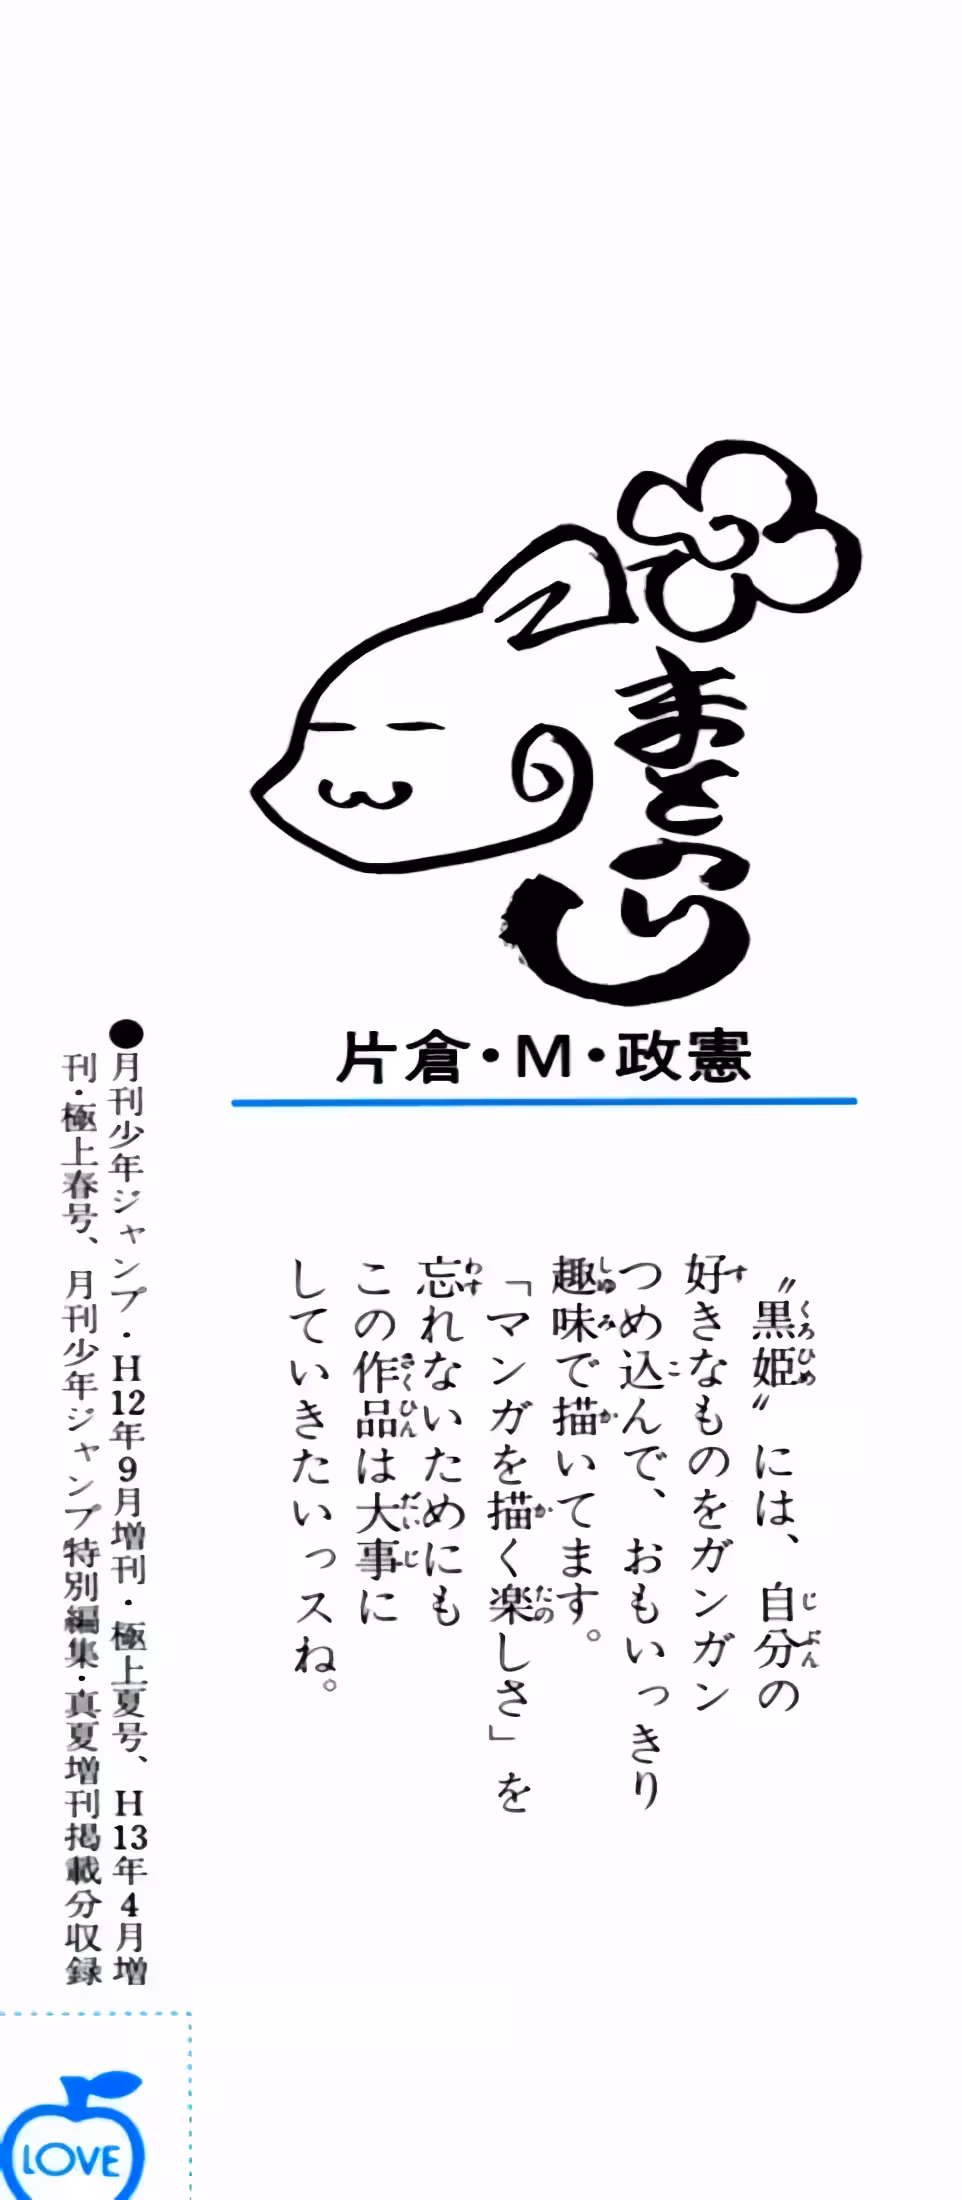 片倉・M・政憲
〝黒姫〟には、自分の
好きなものをガンガン
つめ込んで、おもいっきり
趣味で描いてます。
「マンガを描く楽しさ」を
忘れないためにも
この作品は大事に
していきたいっスね。
●月刊少年ジャンプ・H12年9月増刊・極上夏号、H13年4月増
刊・極上春号、月刊少年ジャンプ特別編集・真夏増刊掲載分収録
LOVE